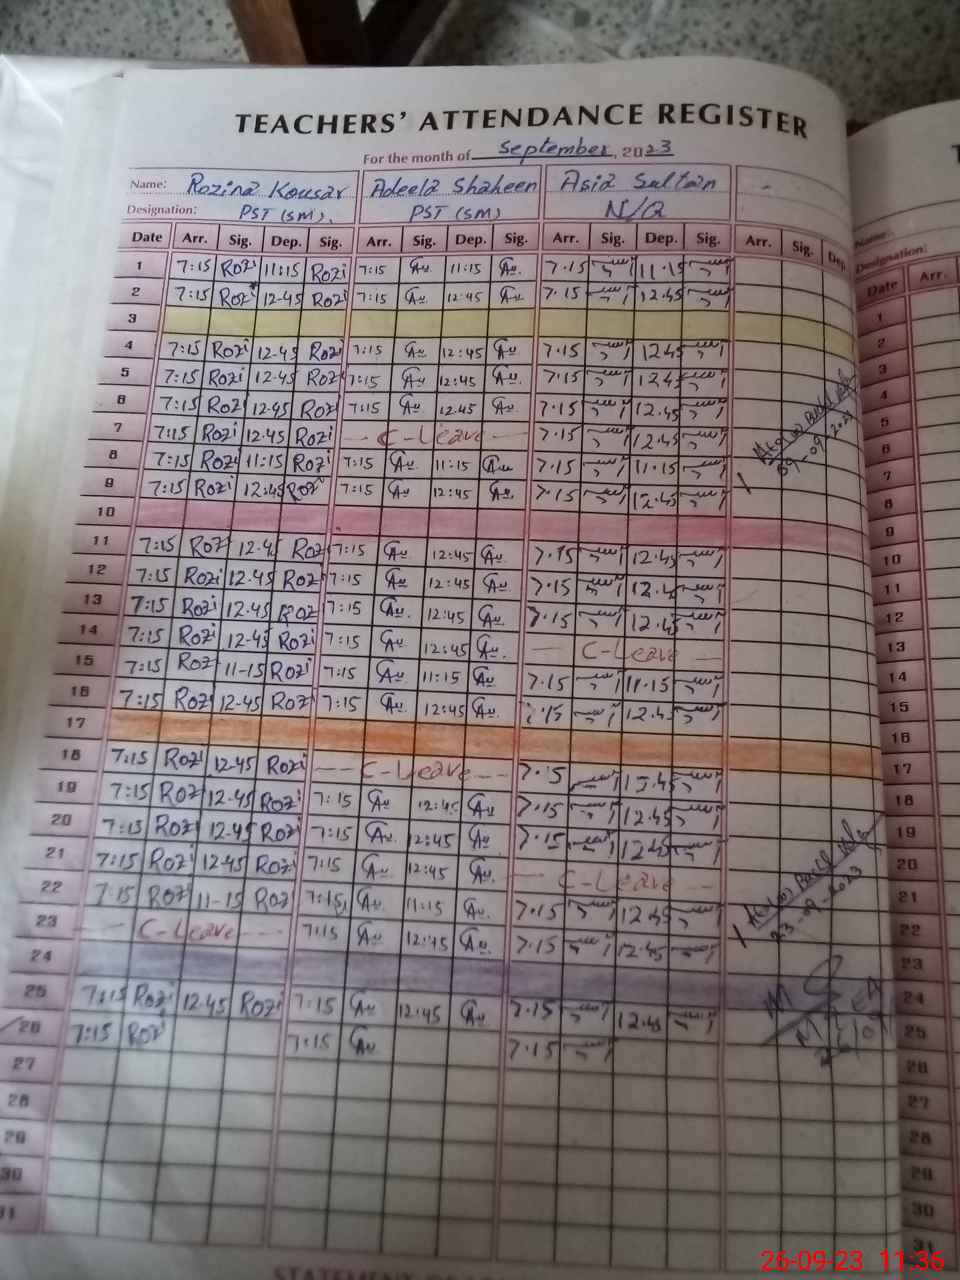 TEACHERS' ATTENDANCE REGISTER
For the month of September, 2023
Name: Rozina Kousar Adeela Shaheen Asia Sultan
Designation: PST (SM). PST (SM) N/Q
Date Arr. Sig. Dep. Sig. Arr. Sig. Dep. Sig. Arr. Sig. Dep. Sig. Arr. Sig. Dep.
1 7:15 Rozi 11:15 Rozi 7:15 11:15 7.15 11.15
2 7:15 Rozi 12-45 Rozi 7:15 12:45 7.15 12.45
3
4 7:15 Rozi 12-45 Rozi 7:15 12:45 7.15 12.45
5 7:15 Rozi 12-45 Rozi 7:15 12:45 7.15 12.45
6 7:15 Rozi 12-45 Rozi 7:15 12.45 7.15 12.45
7 7:15 Rozi 12-45 Rozi C-Leave 7.15 12.45
8 7:15 Rozi 11:15 Rozi 7:15 11:15 7.15 11.15
9 7:15 Rozi 12:45 Rozi 7:15 12:45 7.15 12.45
10
11 7:15 Rozi 12-45 Rozi 7:15 12:45 7.15 12.45
12 7:15 Rozi 12-45 Rozi 7:15 12:45 7.15 12.45
13 7:15 Rozi 12-45 Rozi 7:15 12:45 7.15 12.45
14 7:15 Rozi 12-45 Rozi 7:15 12:45 C-Leave
15 7:15 Rozi 11-15 Rozi 7:15 11:15 7.15 11.15
16 7:15 Rozi 12-45 Rozi 7:15 12:45 7.15 12.45
17
18 7:15 Rozi 12-45 Rozi C-Leave 7.15 12.45
19 7:15 Rozi 12-45 Rozi 7:15 12:45 7.15 12.45
20 7:15 Rozi 12-45 Rozi 7:15 12:45 7.15 12.45
21 7:15 Rozi 12-45 Rozi 7:15 12:45 C-Leave
22 7:15 Rozi 11-15 Rozi 7:15 11:15 7.15 12.45
23 C-Leave 7:15 12:45 7.15 12.45
24
25 7:15 Rozi 12-45 Rozi 7:15 12:45 7.15 12.45
26 7:15 Rozi 7:15 7.15
27
28
29
30
31
09-09-2023
23-09-2023
MEA
26/09
Name:
Designation:
Date Arr.
1
2
3
4
5
6
7
8
9
10
11
12
13
14
15
16
17
18
19
20
21
22
23
24
25
26
27
28
29
30
31
STATEMENT
26-09-23 11:36